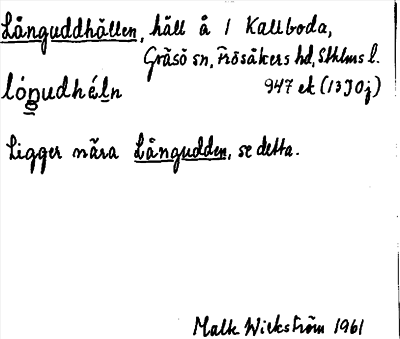 Långuddhällen, häll å 1 Kallboda,
Gräsö sn, Frösåkers hd, Sthlms l.
lóŋudhéln 947 ek (13J0j)
Ligger nära Långudden, se detta.
Malk Wickström 1961